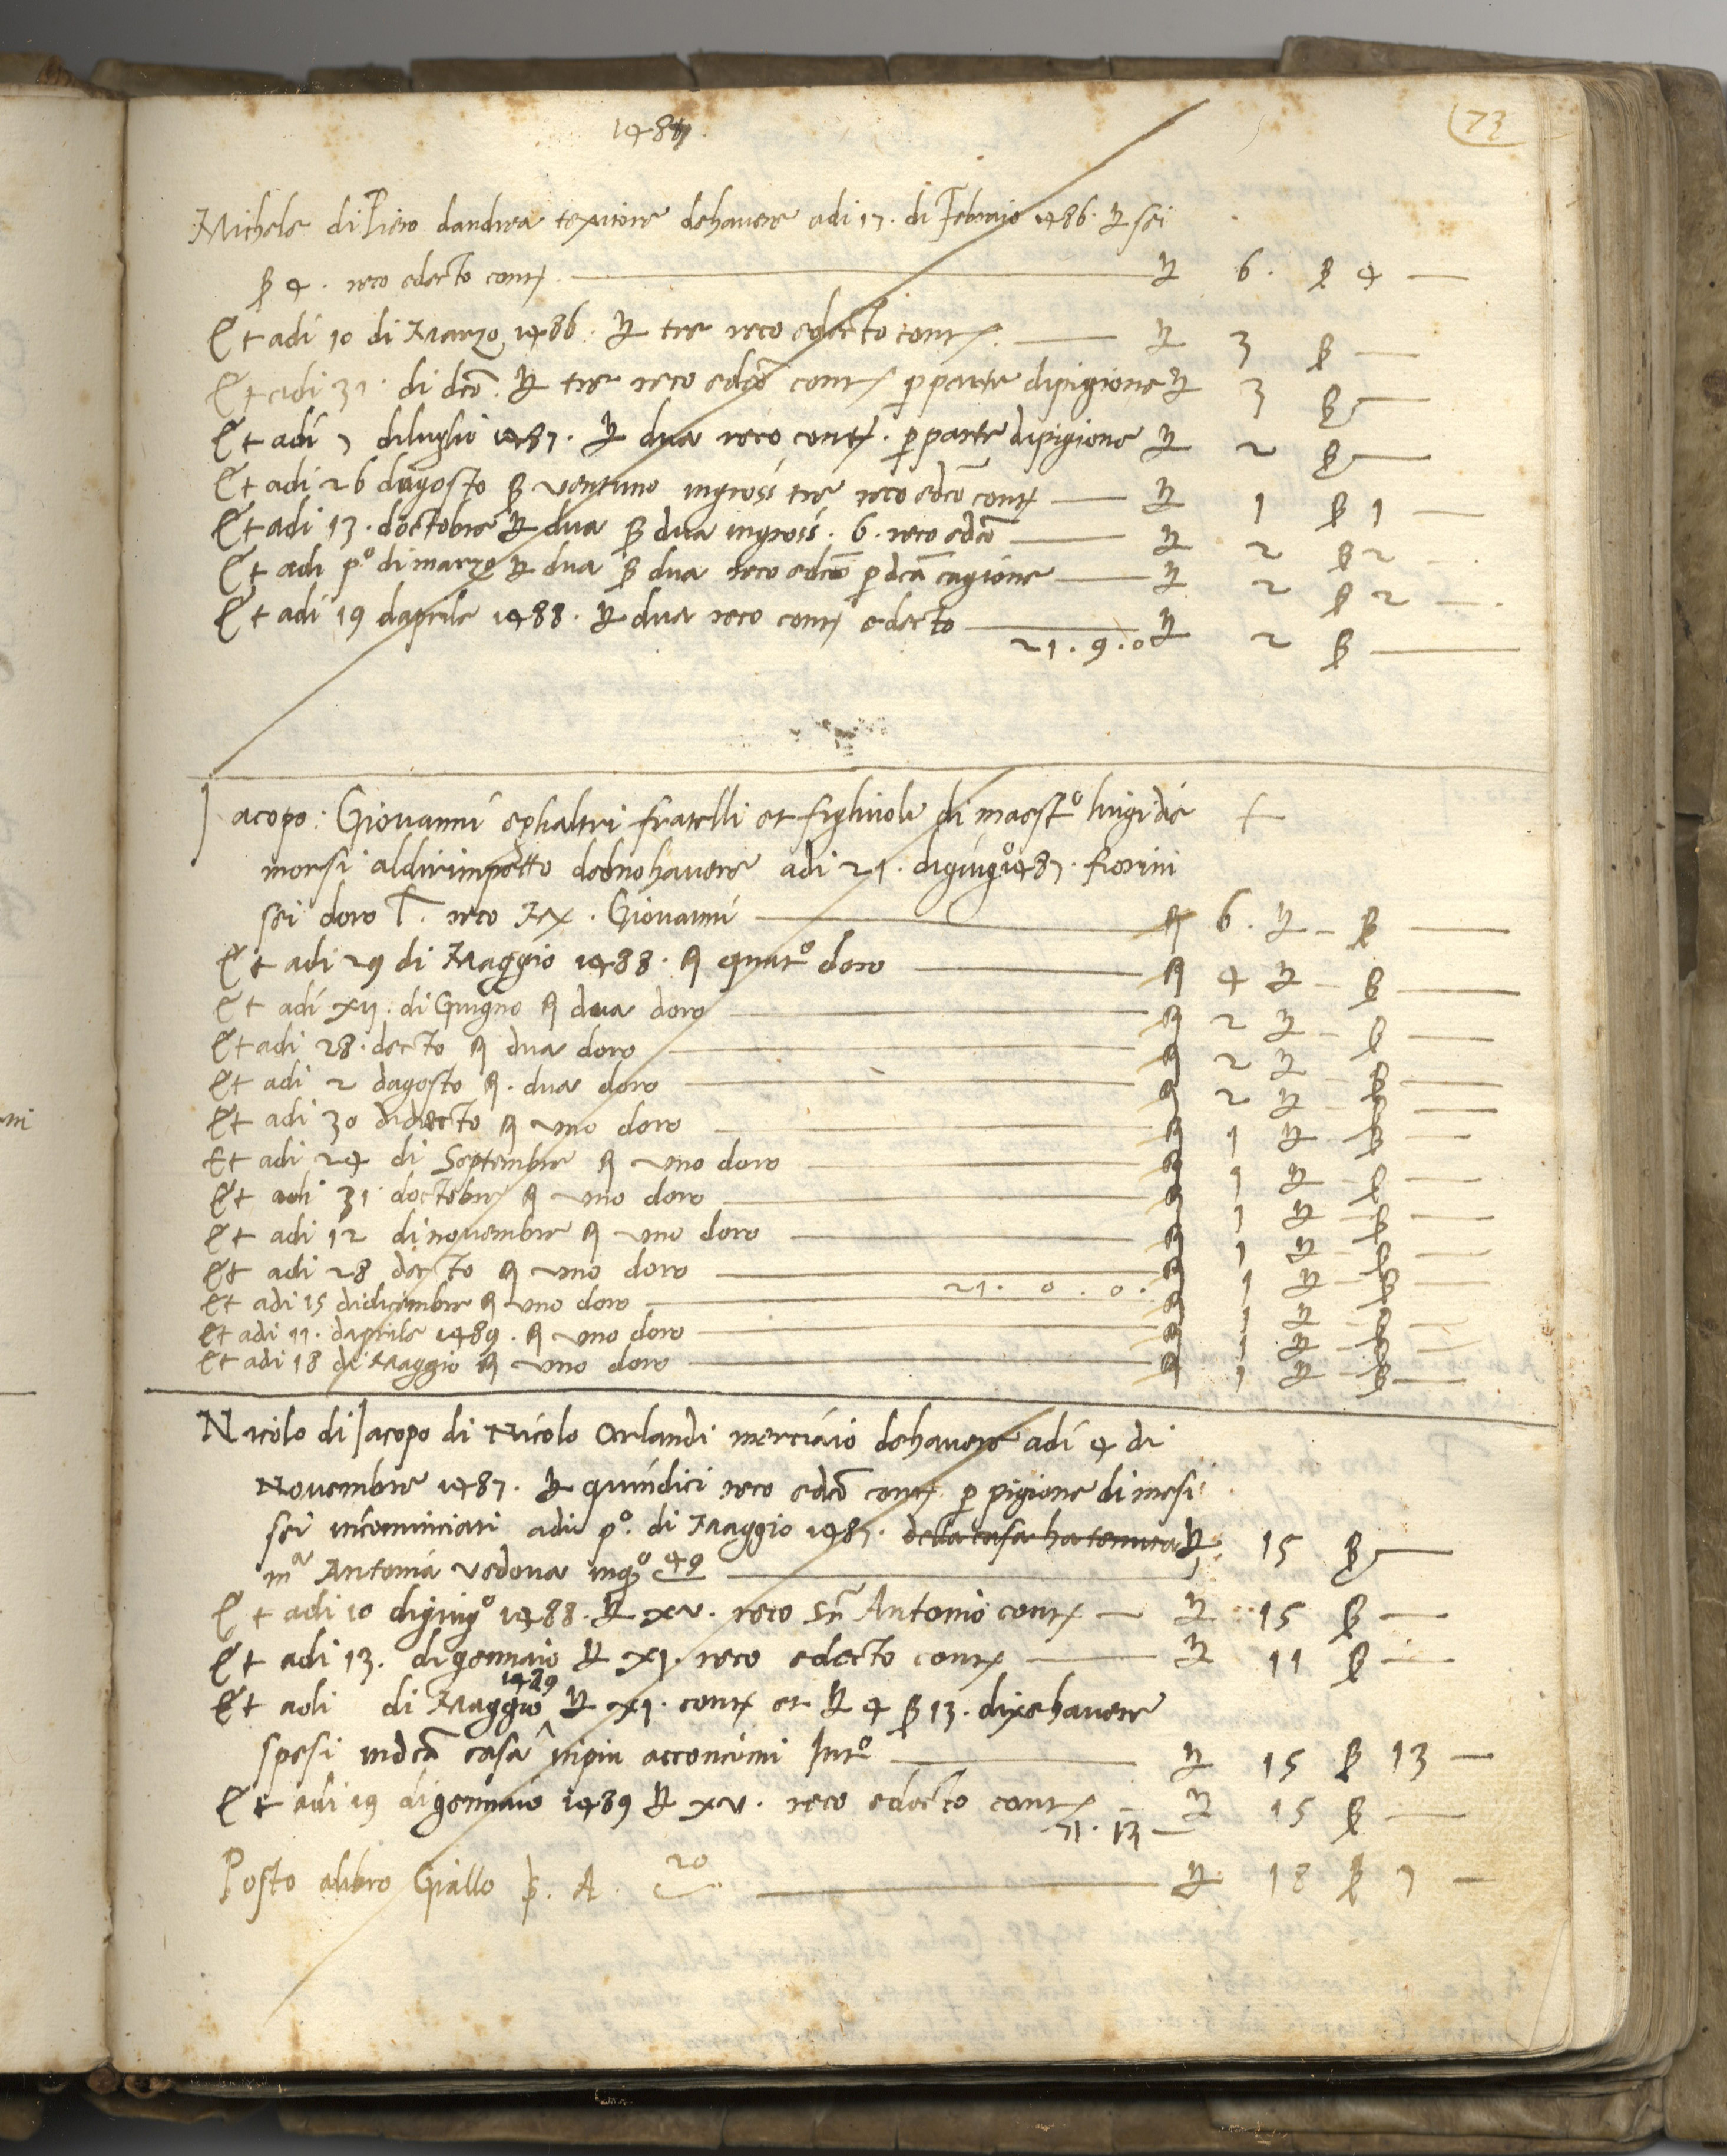 1487
73
Michele di Piero dandrea texitore dehavere adi 17. di Febraio 1486. ₶ sei
β 4. reco edecto cont. ₶ 6. β 4 —
Et adi 10 di Marzo 1486. ₶ tre reco edecto cont. ₶ 3 β —
Et adi 31. di dco. ₶ tre reco edco cont. p parte dipigione ₶ 3 β —
Et adi 7 diluglio 1487. ₶ dua reco cont. p parte dipigione ₶ 2 β —
Et adi 26 dagosto β ventuno ingrossi tre reco edco cont — ₶ 1 β 1 —
Et adi 13. doctobre ₶ dua β dua ingrossi. 6. reco edco — ₶ 2 β 2 —
Et adi pº di marzo ₶ dua β dua reco edco p dca cagione — ₶ 2 β 2 —
Et adi 19 daprile 1488. ₶ dua reco cont edecto — ₶ 2 β —
21. 9. 0
Jacopo: Giovanni eglialtri fratelli et figliuoli di maestº luigi de +
morsi aldirimpetto debnohavere adi 21. digiugº 1487. fiorini
sei doro l. reco Giovanni — R 6. ₶ – β —
Et adi 29 di Maggio 1488. R quatº doro — R 4 ₶ – β —
Et adi xij. di Giugno R dua doro — R 2 ₶ – β —
Et adi 28. decto R dua doro — R 2 ₶ – β —
Et adi 2 dagosto R. dua doro — R 2 ₶ – β —
Et adi 30 didecto R uno doro — R 1 ₶ – β —
Et adi 24 di Septembre R uno doro — R 1 ₶ – β —
Et adi 31 doctobre R uno doro — R 1 ₶ – β —
Et adi 12 dinovembre R uno doro — R 1 ₶ – β —
Et adi 28 decto R uno doro — R 1 ₶ – β —
21. 0. 0.
Et adi 15 didicembre R uno doro — R 1 ₶ – β —
Et adi 11. daprile 1489. R uno doro — R 1 ₶ – β —
Et adi 18 di Maggio R uno doro — R 1 ₶ – β —
Nicolo di Jacopo di Nicolo Orlandi merciaio dehavere adi 4 di
Novembre 1487. ₶ quindici reco edco cont. p pigione di mesi
sei incominciati adi pº. di Maggio 1487. della casa ha tenuta ₶ 15 β —
mª Antonia vedova inqº 49 —
Et adi 10 digiugº 1488. ₶ xv. reco sñ Antonio cont — ₶ 15 β —
Et adi 13. digennaio ₶ xj. reco edecto cont — ₶ 11 β —
1489
Et adi di Maggio ₶ xj. cont et ₶ 4 β 13. dixehavere
spesi indca casa inpiu acconcimi — ₶ 15 β 13 —
Et adi 19 digennaio 1489 ₶ xv. reco edecto cont — ₶ 15 β —
71. 13 —
Posto alibro Giallo A. 20 — ₶ 18 β 7 —